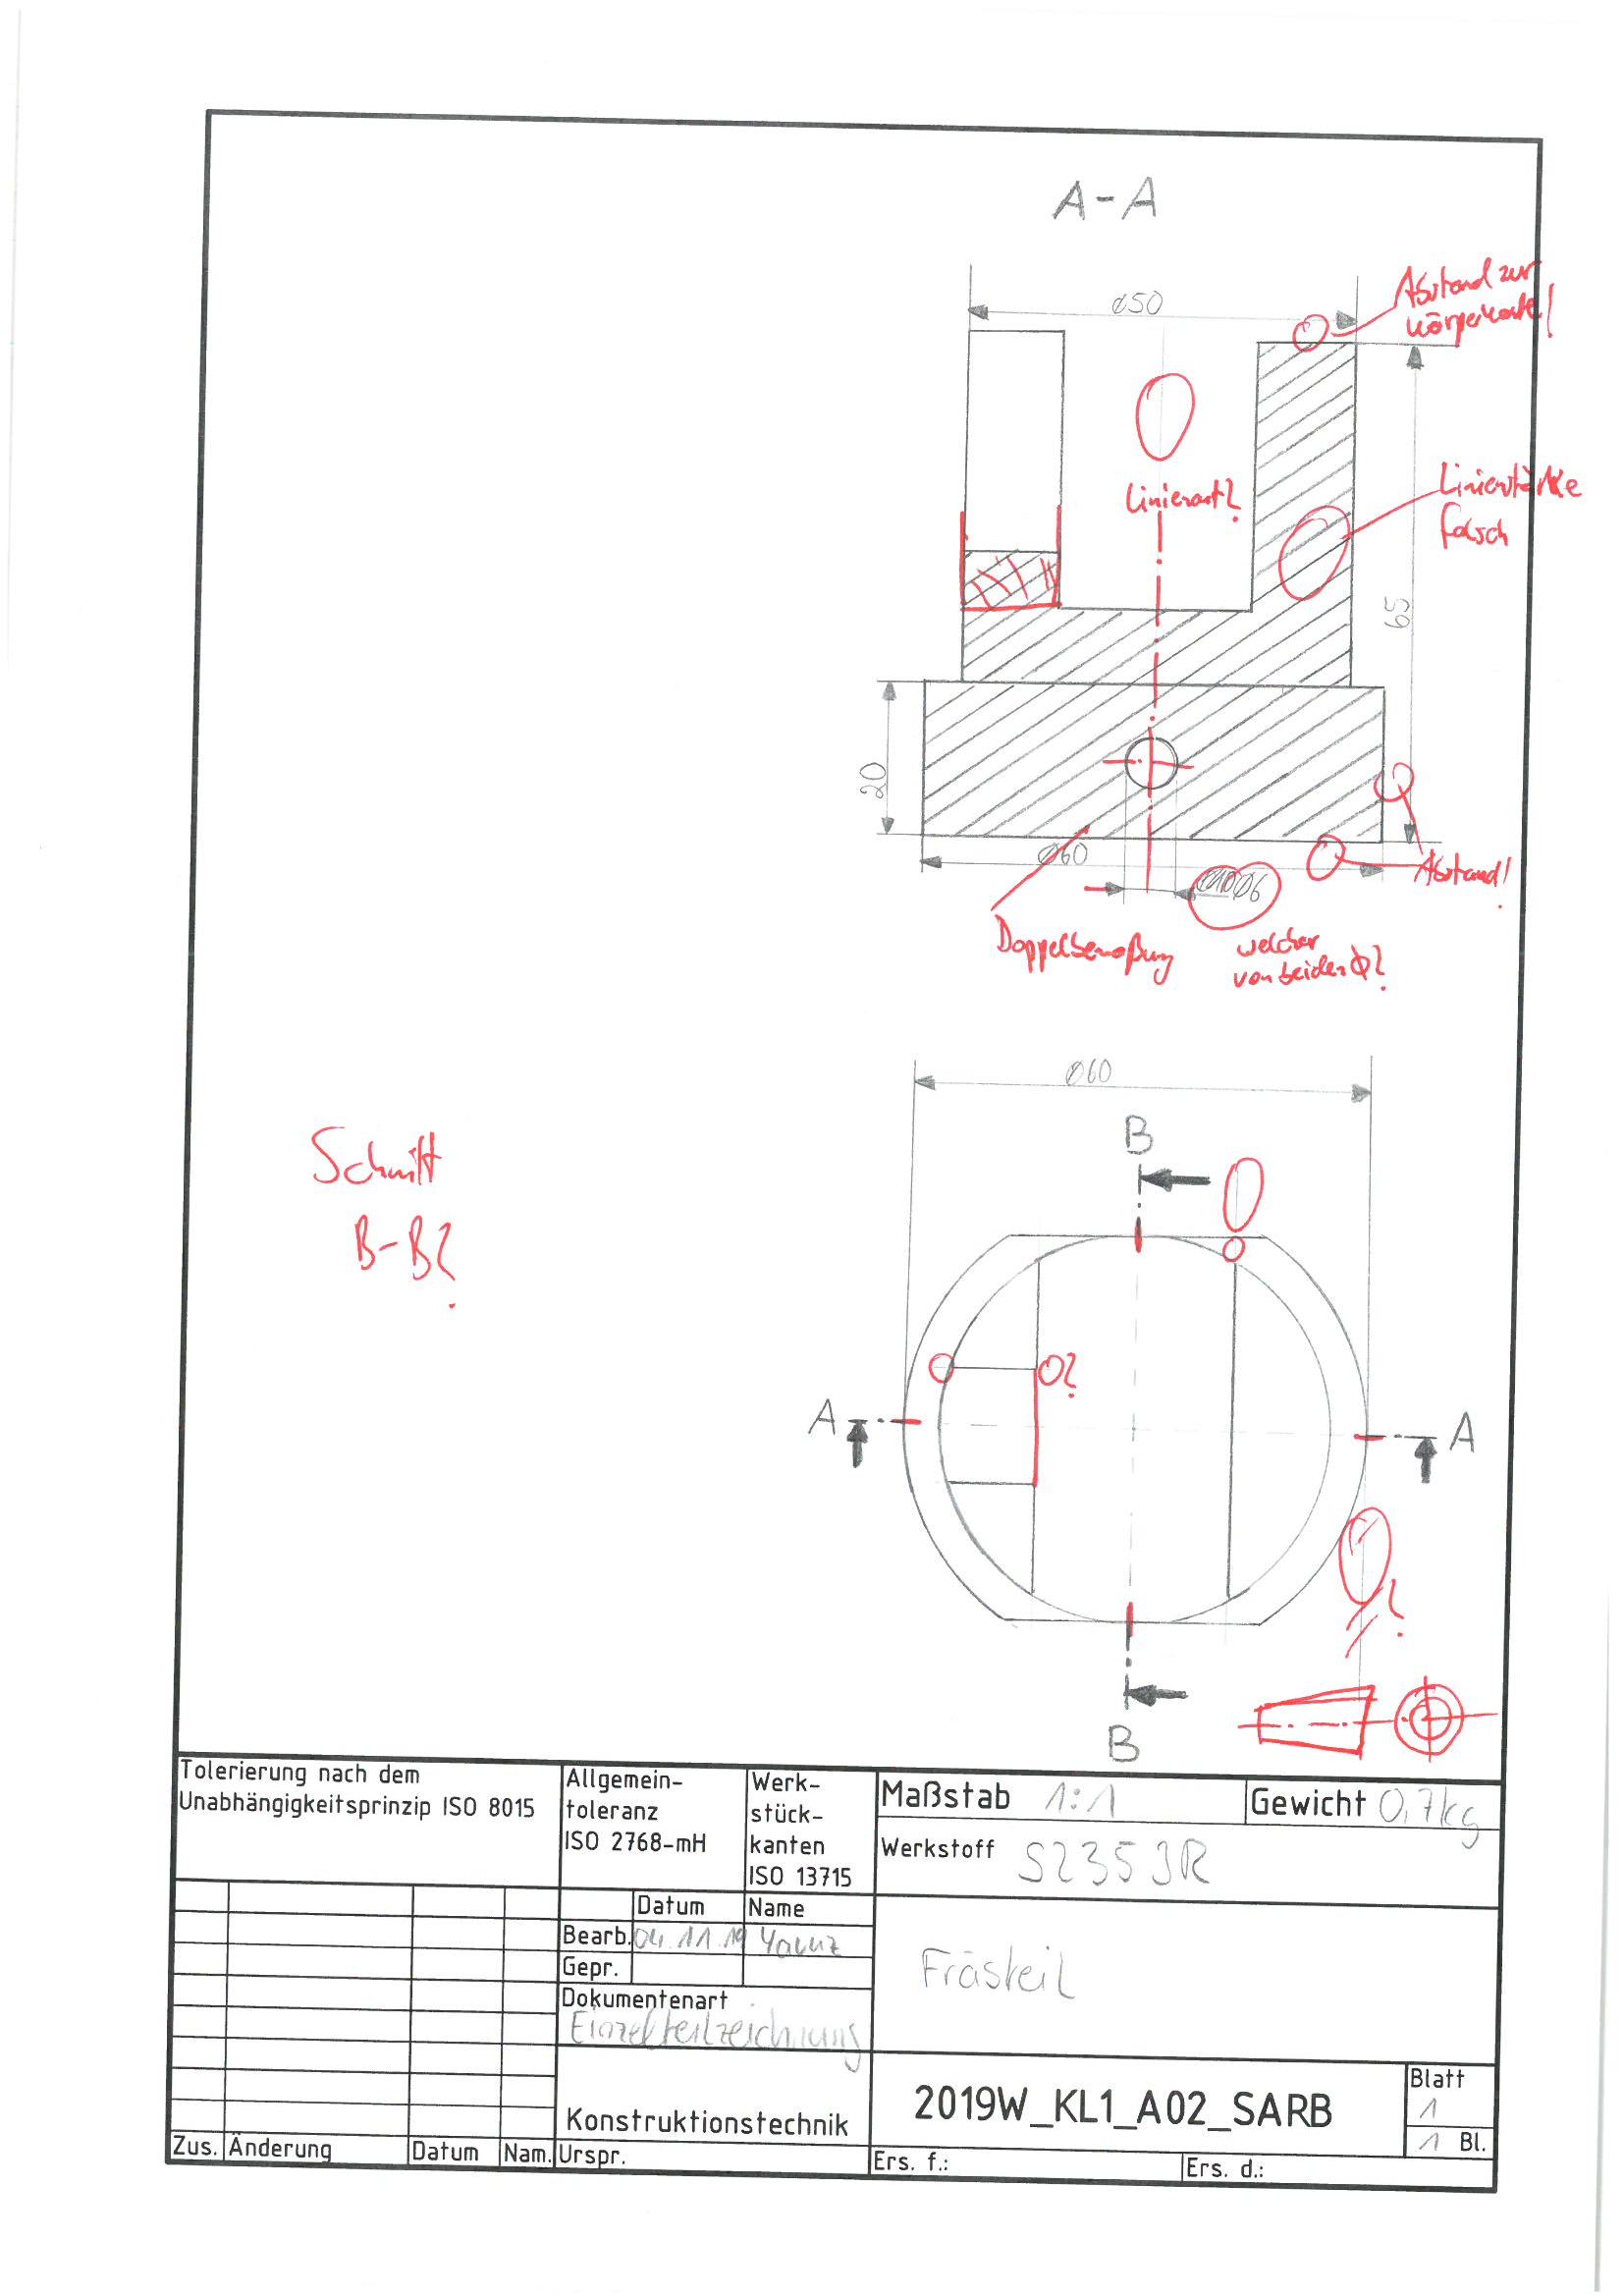 A-A
Abstand zur
Körperkante!
⌀50
Linienart?
Linienstärke
falsch
65
20
⌀60
⌀6
Abstand!
Doppelbemaßung
welcher
von beiden ⌀?
⌀60
B
Schnitt
B-B?
?
A
A
?
B
Tolerierung nach dem
Unabhängigkeitsprinzip ISO 8015
Allgemein-
toleranz
ISO 2768-mH
Werk-
stück-
kanten
ISO 13715
Maßstab 1:1
Gewicht 0,7kg
Werkstoff S235JR
Datum
Name
Bearb. 04.11.19 Yavuz
Gepr.
Frästeil
Dokumentenart
Einzelteilzeichnung
Konstruktionstechnik
2019W_KL1_A02_SARB
Blatt
1
1 Bl.
Zus. Änderung Datum Nam. Urspr.
Ers. f.:
Ers. d.: